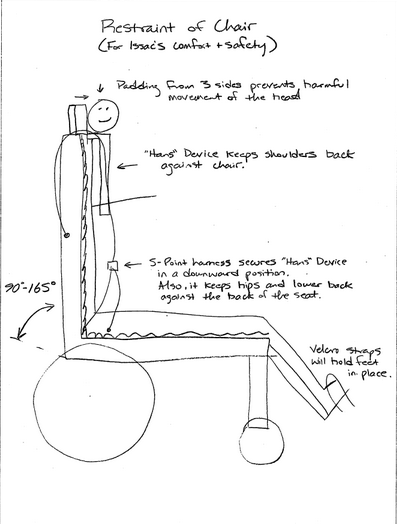 Restraint of Chair
(For Issac's comfort + safety)
Padding from 3 sides prevents harmful
movement of the head
"Hans" Device keeps shoulders back
against chair.
5-Point harness secures "Hans" Device
in a downward position.
Also, it keeps hips and lower back
against the back of the seat.
90°-165°
Velcro straps
will hold feet
in place.